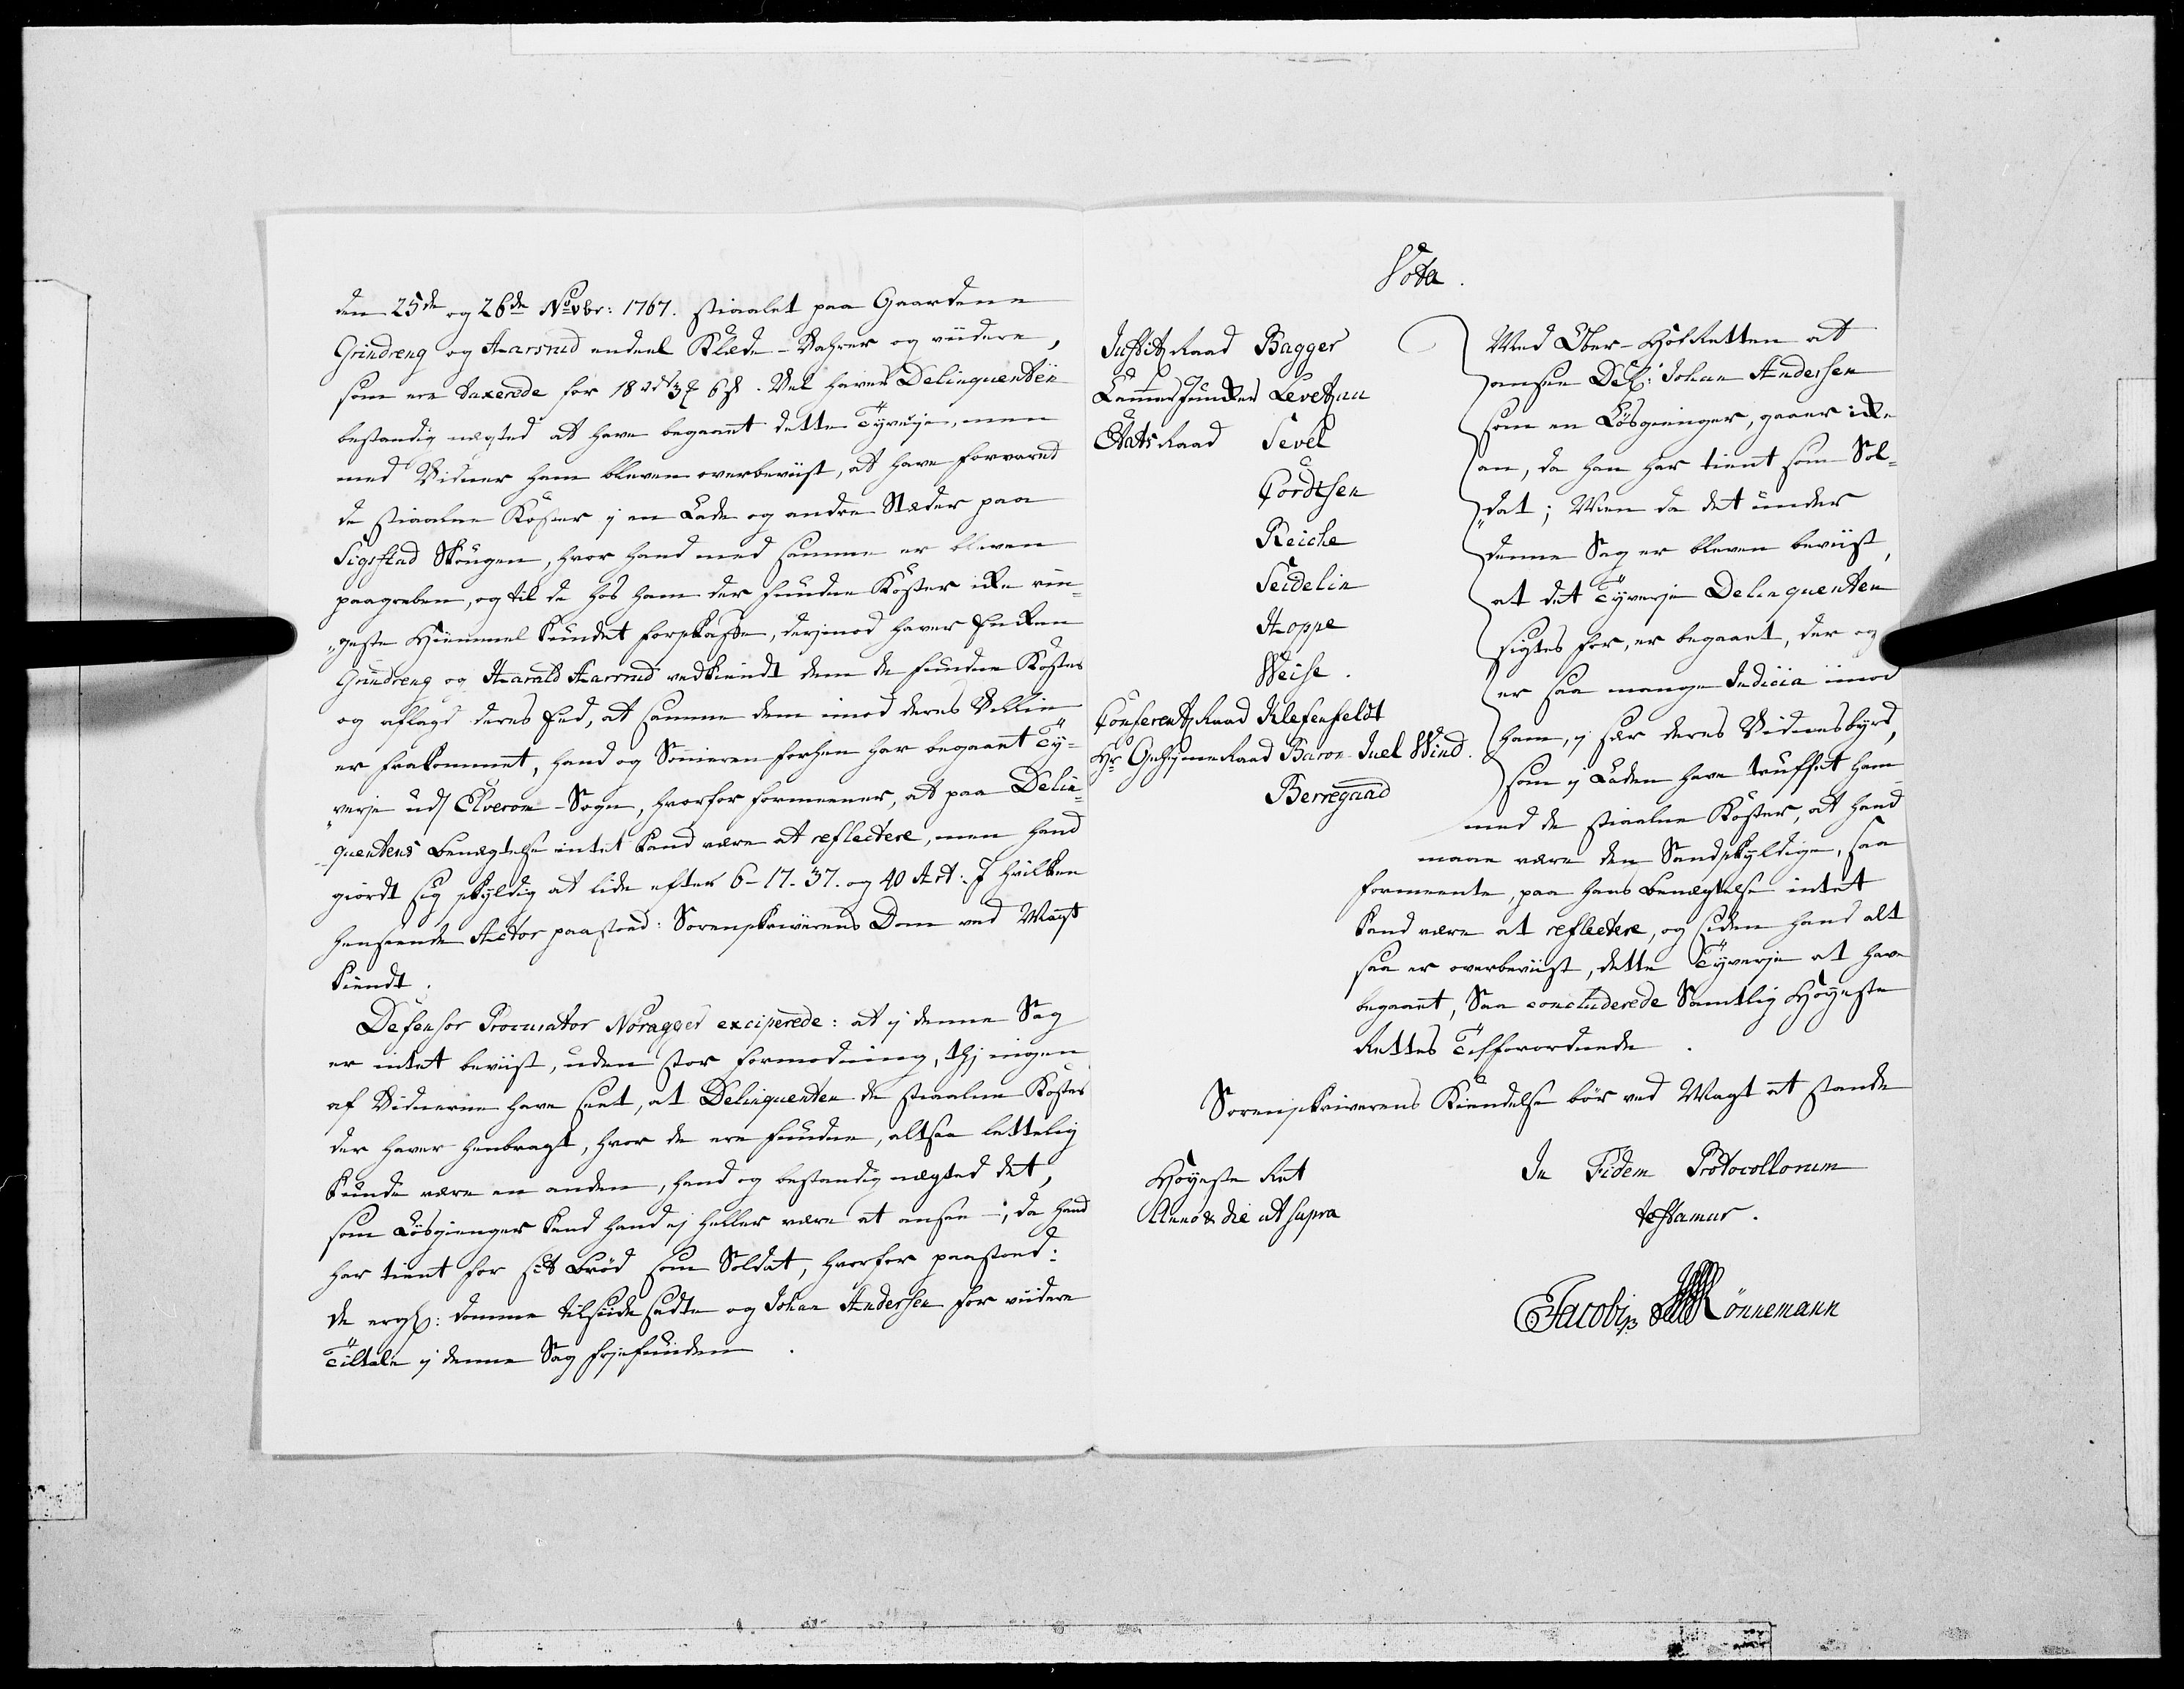 den 25de og 26de Novbr: 1767. stiaalet paa Gaardene
Grindreng og Aarsrud endeel Klæde-Vahrer og viidere,
som ere taxerede for 18 rd 3 ß. Vel haver Delinquenten
bestandig nægted at have begaaet dette Tyverje, men
med Vidner ham bleven overbeviist, at have forvared
de stiaalne Koster j en Lade og andre Stæder paa
Sigstad Skougen, hvor hand med samme er bleven
paagreben, og til de hos ham der fundne Koster icke rin-
geste Hiemmel kundet forskaffe, derjmod haver Encken
Grindreng og Harald Aarsrud vedkiendt dem de fundne Koster
og aflagd deres Eed, at samme dem imod deres Villie
er frakommet, hand og Sønnen forhen har begaaet Ty-
verje udj Elverom-Sogn, hvorfor formeener, at paa Delin-
quentens Benægtelse intet kand være at reflectere, men hand
giordt sig skyldig at lide efter 6-17-37. og 40 Art: J hvilken
henseende Actor paastoed: Sorenskriverens Dom ved Magt
kiendt.
Defensor Procurator Noragger exciperede: at j denne Sag
er intet beviist, uden stor Formodning, thj ingen
af Vidnerne have seet, at Delinquenten de stiaalne Koster
der haver henbragt, hvor de ere fundne, altsaa lettelig
kunde være en anden, hand og bestandig nægted det,
som Løsgienger kand hand ej heller være at ansee, da hand
har tient for sit Brød som Soldat, hvorfor paastoed:
de ergl: Domme tilside sadte og Johan Andersen for viidere
Tiltale j denne Sag frjefunden.
Vota.
Justitz Raad Bagger
Cammer Juncker Levetzau
Etats Raad Sevel
Cordtsen
Reiche
Seidelin
Hoppe
Weise.
Conferentz Raad Klefenfeldt
Hr Geheyme Raad Baron Juel Wind.
Berregaard
Med Over-Hof Retten at
ansee Del: Johan Andersen
som en Løsgienger, gaaer icke
an, da han har tient som Sol-
dat; Men da det under
denne Sag er bleven beviist,
at det Tyverje Delinquenten
sigtes for, er begaaet, der og
er saa mange Indicia imod
ham, j sær deres Vidnesbyrd,
som j Laden have truffet ham
med de stiaalne Koster, at hand
maae være den Sandskyldige, saa
formeente, paa hans Benægtelse intet
kand være at reflectere, og siden hand alt
saa er overbeviist, dette Tyverje at have
begaaet, Saa concluderede Samtlig Høyeste
Rettes Tilforordnede.
Sorenskriverens Kiendelse bør ved Magt at stande
Høyeste Ret
Anno & die ut supra
In Fidem Protocollorum
testamur.
Jacobi Rønnemann